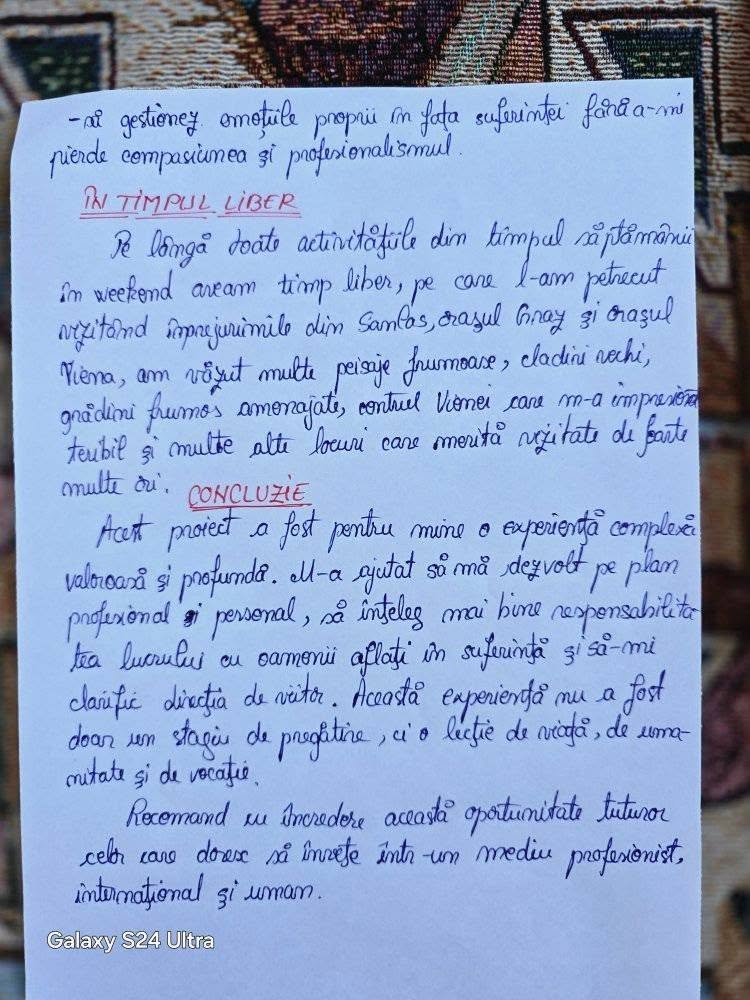 -să gestionez emoțiile proprii în fața suferinței fără a-mi
pierde compasiunea și profesionalismul.
ÎN TIMPUL LIBER
Pe lângă toate activitățiile din timpul săptămânii
în weekend aveam timp liber, pe care l-am petrecut
vizitând împrejurimile din Santas, orașul Graz și orașul
Viena, am văzut multe peisaje frumoase, cladiri vechi,
grădini frumos amenajate, centrul Vienei care m-a impresionat
teribil și multe alte locuri care merită vizitate de foarte
multe ori. CONCLUZIE
Acest proiect a fost pentru mine o experiență complexă
valoroasă și profundă. M-a ajutat să mă dezvolt pe plan
profesional și personal, să înțeleg mai bine responsabilita-
tea lucrului cu oamenii aflați în suferință și să-mi
clarific direcția de viitor. Această experiență nu a fost
doar un stagiu de pregătire, ci o lecție de viață, de uma-
nitate și de vocație.
Recomand cu încredere această oportunitate tuturor
celor care doresc să învețe într-un mediu profesionist,
internațional și uman.
Galaxy S24 Ultra